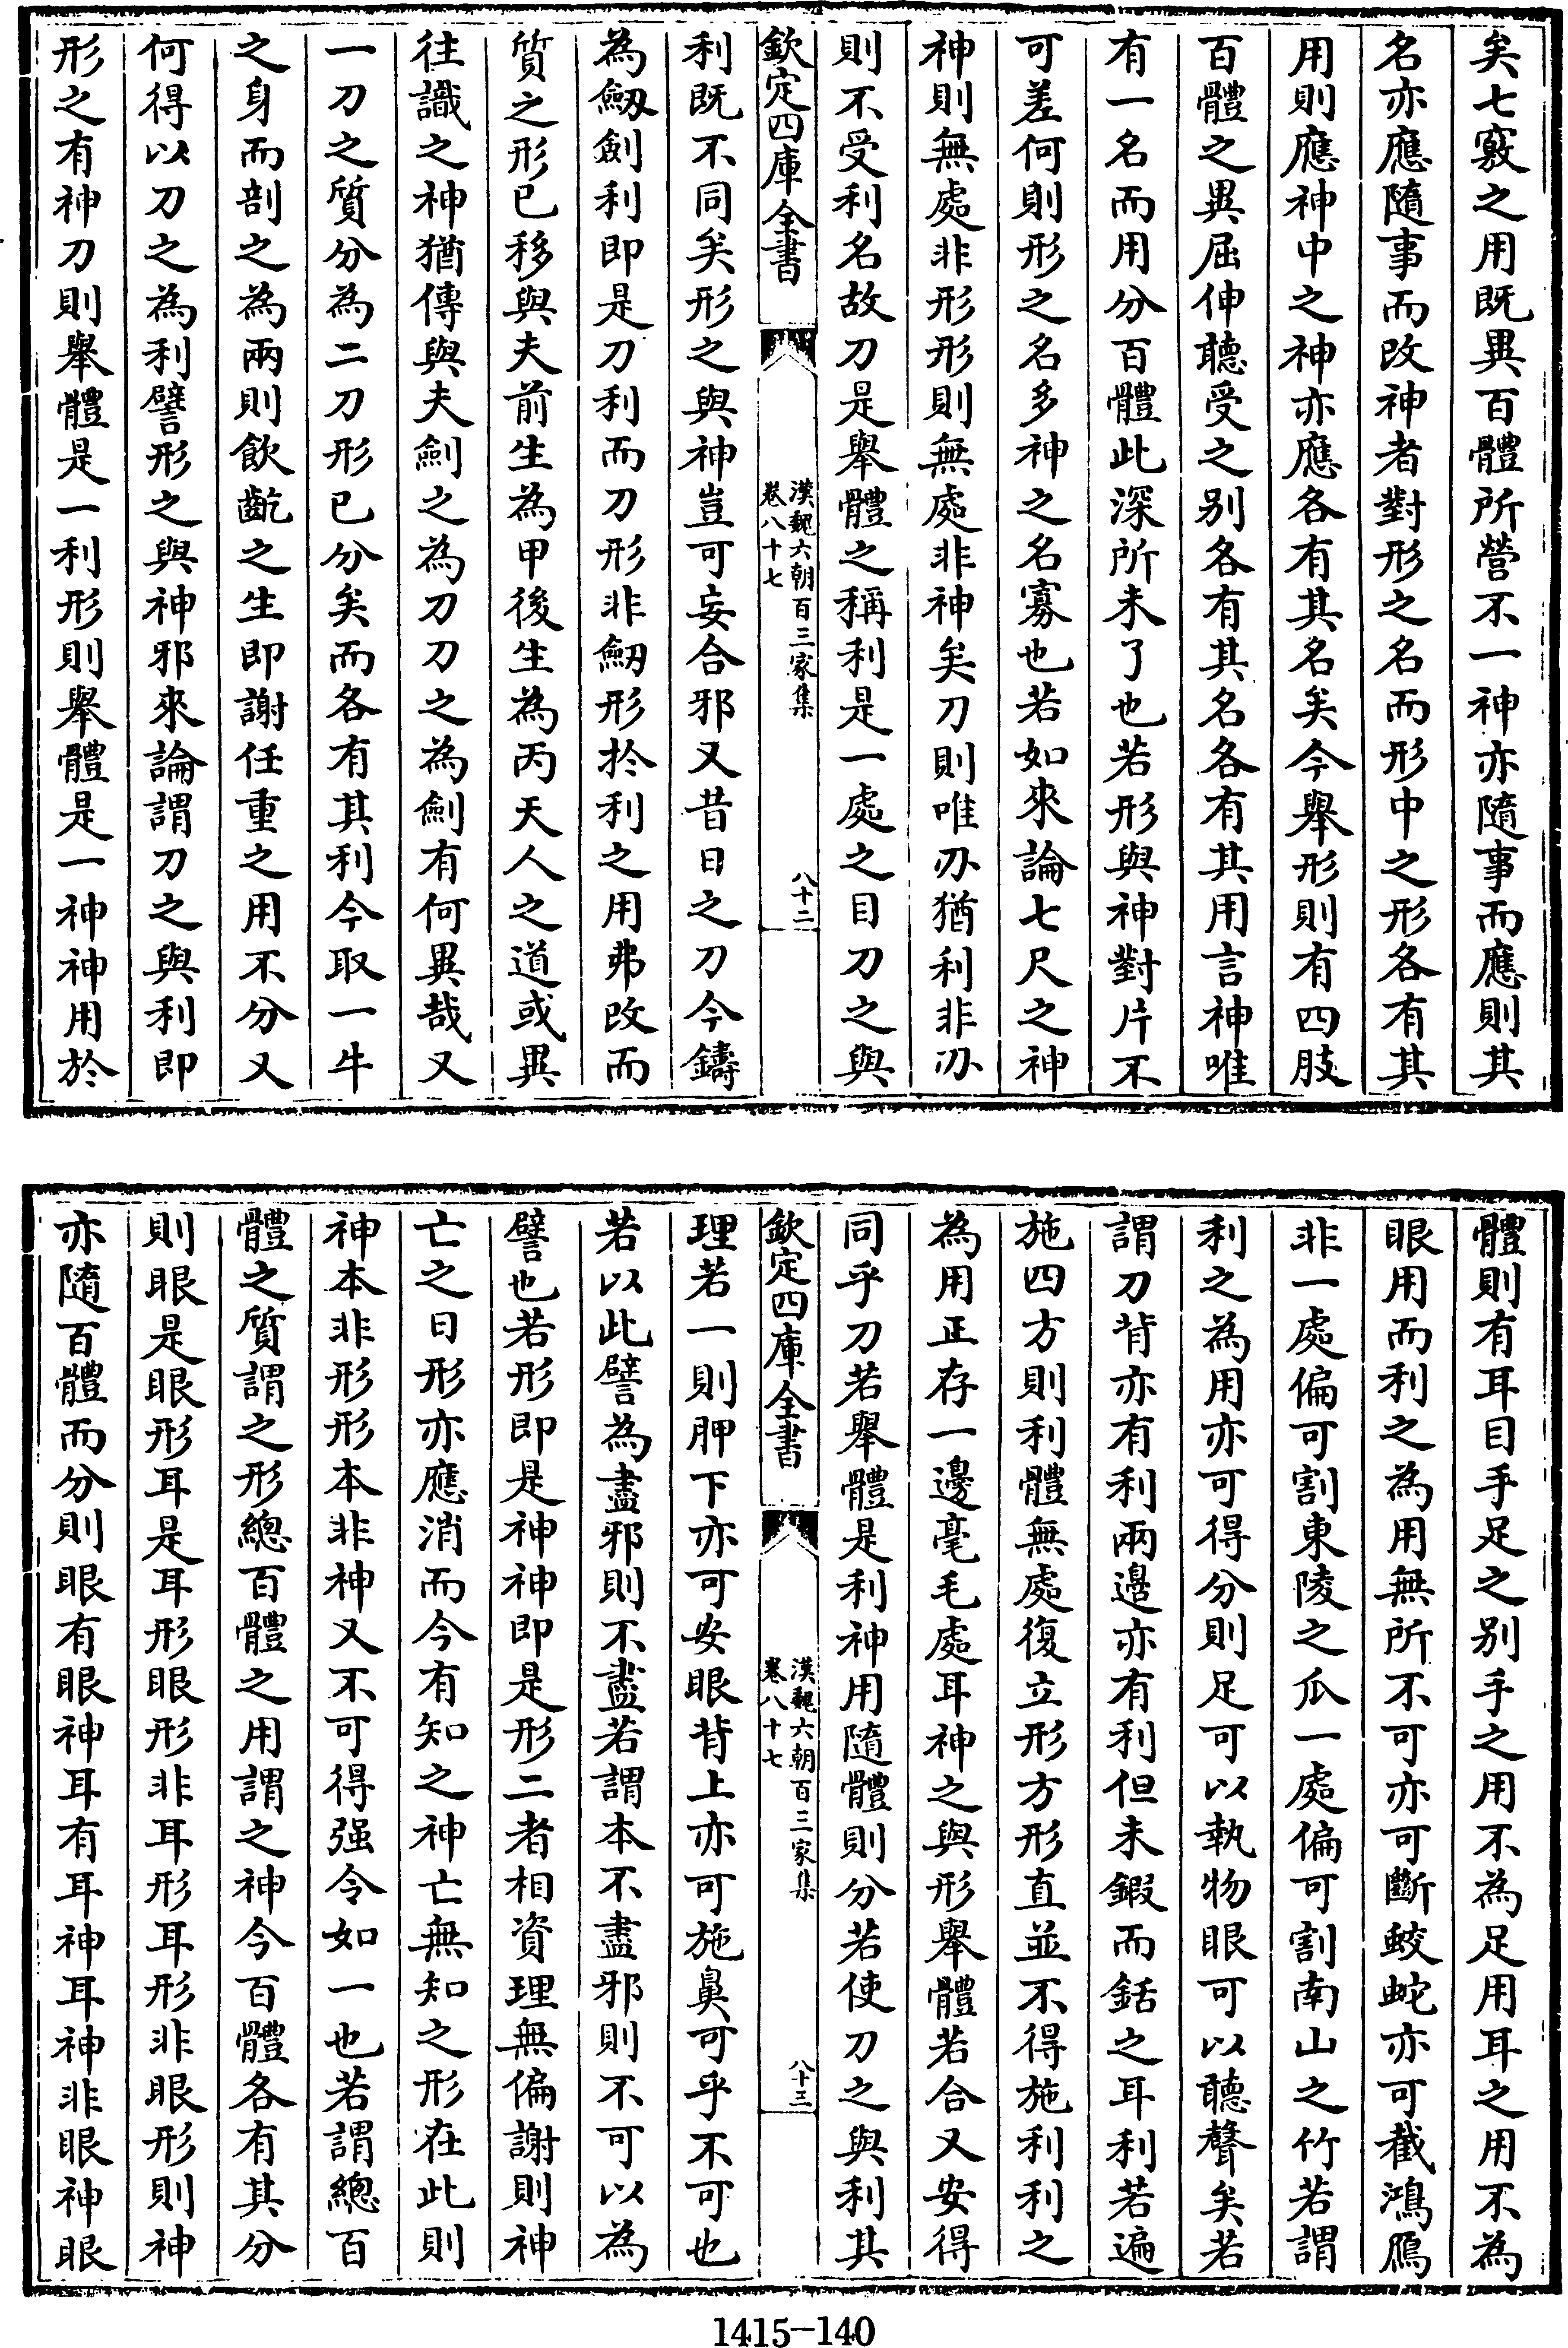 矣七竅之用既異百體所營不一神亦隨事而應則其
名亦應隨事而改神者對形之名而形中之形各有其
用則應神中之神亦應各有其名矣今舉形則有四肢
百體之異屈伸聽受之别各有其名各有其用言神唯
有一名而用分百體此深所未了也若形與神對片不
可差何則形之名多神之名寡也若如來論七尺之神
神則無處非形形則無處非神矣刀則唯刅猶利非刅
則不受利名故刀是舉體之稱利是一處之目刀之與
欽定四庫全書
漢魏六朝百三家集
卷八十七
八十二
利既不同矣形之與神豈可妄合邪又昔日之刀今鑄
為劒劍利即是刀利而刀形非劒形於利之用弗改而
質之形已移與夫前生為甲後生為丙天人之道或異
往識之神猶傳與夫劍之為刀刀之為劍有何異哉又
一刀之質分為二刀形已分矣而各有其利今取一牛
之身而剖之為兩則飲齕之生即謝任重之用不分又
何得以刀之為利譬形之與神邪來論謂刀之與利即
形之有神刀則舉體是一利形則舉體是一神神用於
體則有耳目手足之别手之用不為足用耳之用不為
眼用而利之為用無所不可亦可斷蛟蛇亦可截鴻鴈
非一處偏可割東陵之瓜一處偏可割南山之竹若謂
利之為用亦可得分則足可以執物眼可以聽聲矣若
謂刀背亦有利兩邉亦有利但未鍜而銛之耳利若遍
施四方則利體無處復立形方形直並不得施利利之
為用正存一邊毫毛處耳神之與形舉體若合又安得
同乎刀若舉體是利神用隨體則分若使刀之與利其
欽定四庫全書
漢魏六朝百三家集
卷八十七
八十三
理若一則胛下亦可安眼背上亦可施鼻可乎不可也
若以此譬為盡邪則不盡若謂本不盡邪則不可以為
譬也若形即是神神即是形二者相資理無偏謝則神
亡之日形亦應消而今有知之神亡無知之形在此則
神本非形形本非神又不可得强令如一也若謂總百
體之質謂之形總百體之用謂之神今百體各有其分
則眼是眼形耳是耳形眼形非耳形耳形非眼形則神
亦隨百體而分則眼有眼神耳有耳神耳神非眼神眼
1415-140